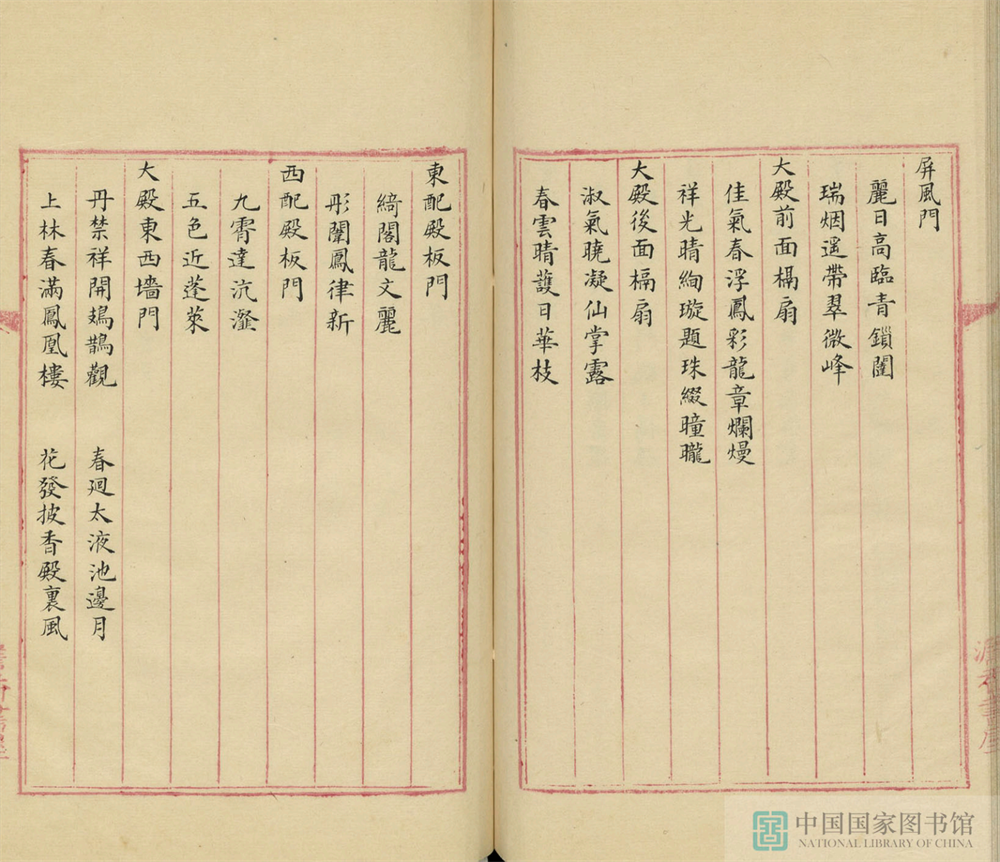 屏風門
麗日高臨青鎖闥
瑞烟遥帶翠微峰
大殿前面槅扇
佳氣春浮鳳彩龍章爛熳
祥光晴絢璇題珠綴曈曨
大殿後面槅扇
淑氣曉凝仙掌露
春雲晴護日華枝
東配殿板門
綺閣龍文麗
彤闈鳳律新
西配殿板門
九霄達沆瀣
五色近蓬萊
大殿東西墻門
丹禁祥開鳷鵲觀 春廻太液池邊月
上林春滿鳳凰樓 花發披香殿裏風
中国国家图书馆
NATIONAL LIBRARY OF CHINA